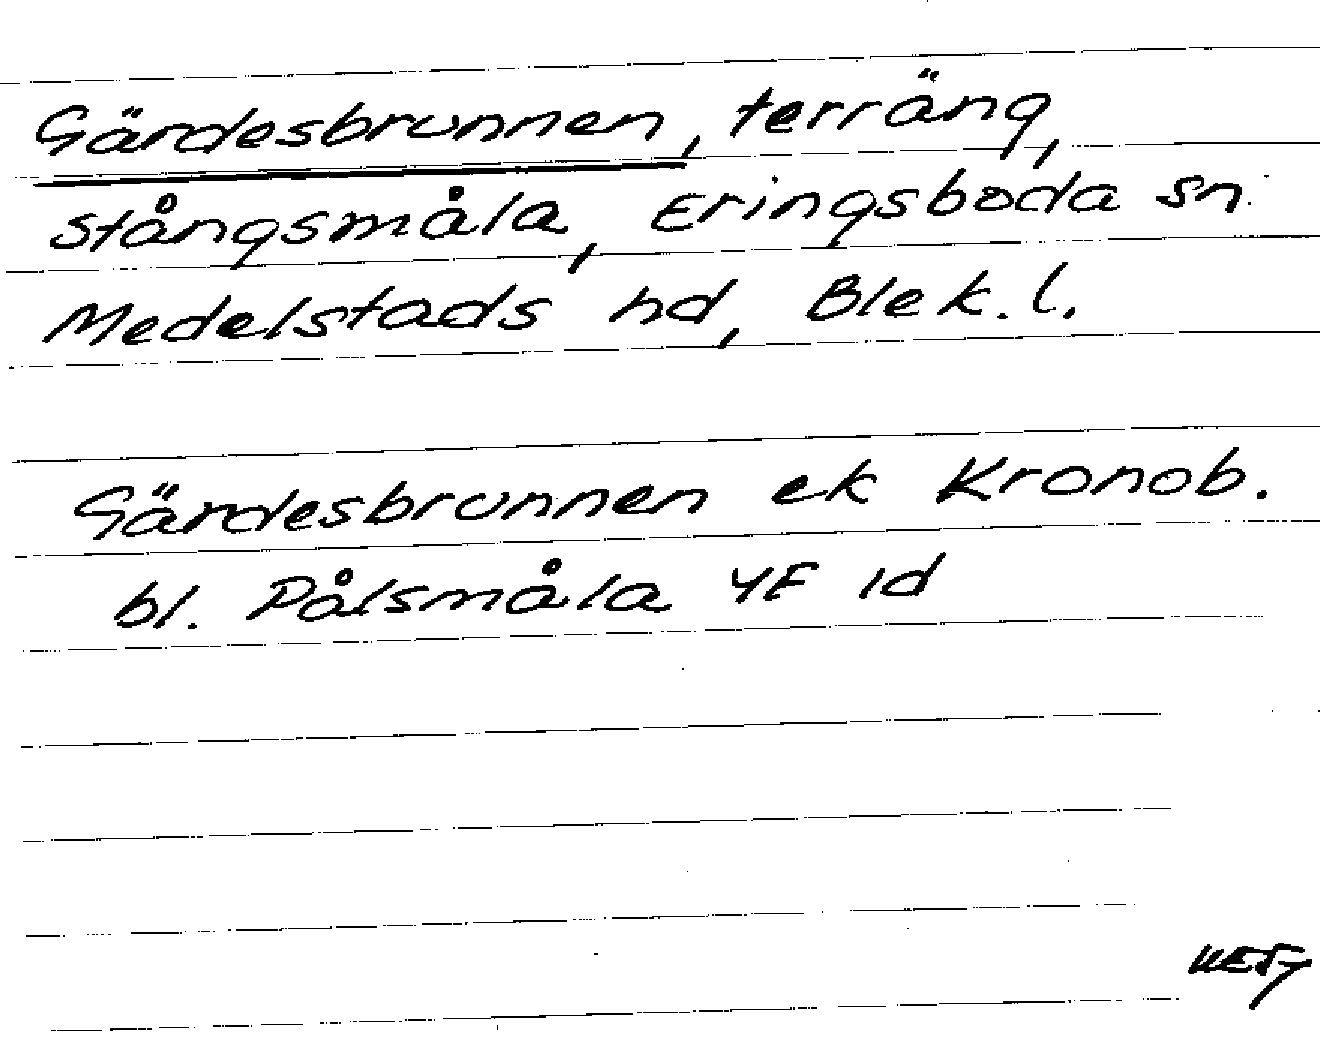 Gärdesbrunnen, terräng,
Stångsmåla, Eringsboda sn.
Medelstads hd, Blek. l.
Gärdesbrunnen ek Kronob.
bl. Pålsmåla 4F 1d